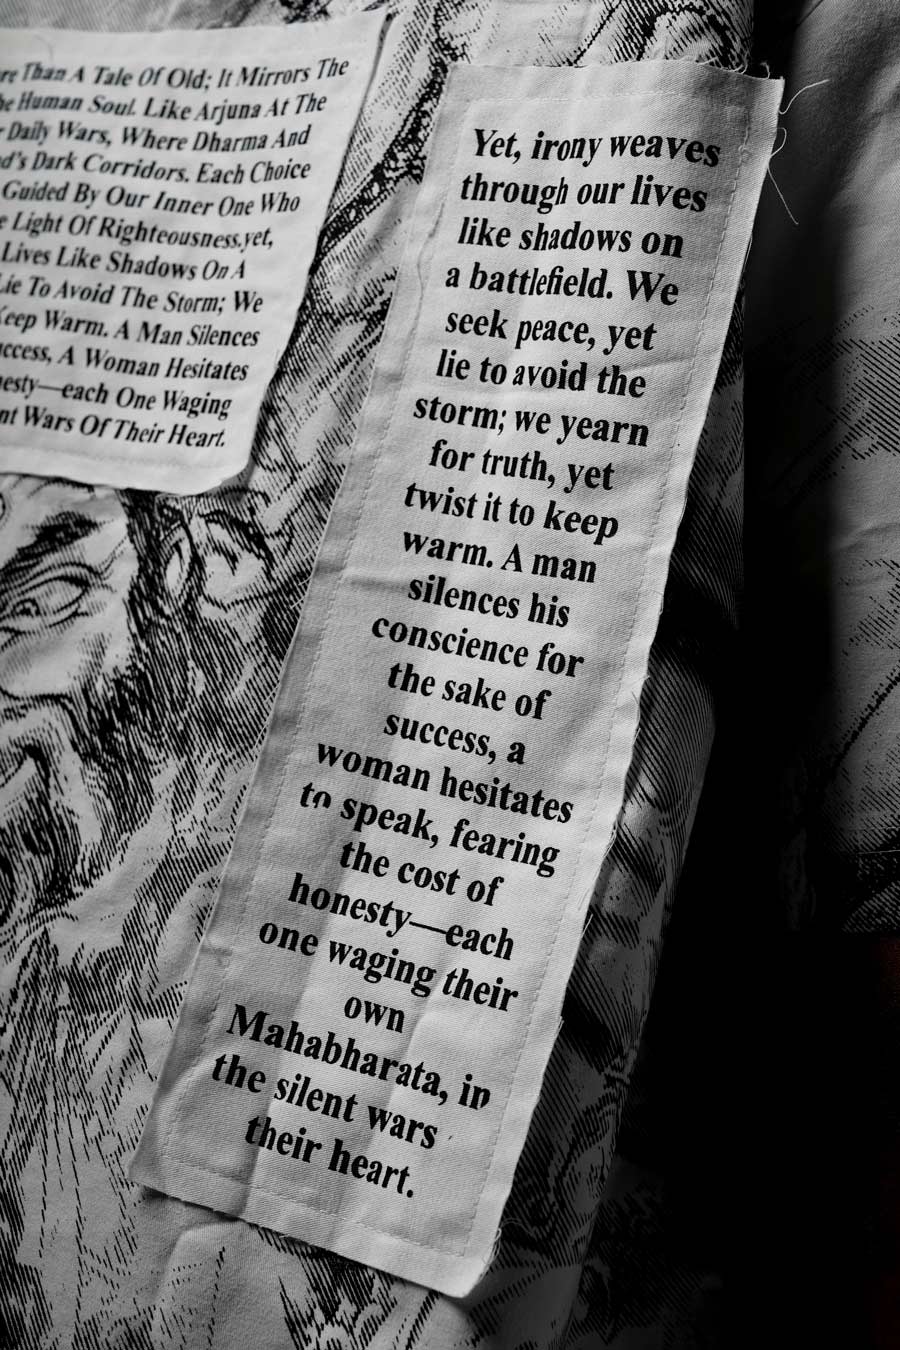 Than A Tale Of Old; It Mirrors The
Human Soul. Like Arjuna At The
Daily Wars, Where Dharma And
Dark Corridors. Each Choice
Guided By Our Inner One Who
Light Of Righteousness.yet,
Lives Like Shadows On A
Lie To Avoid The Storm; We
Keep Warm. A Man Silences
A Woman Hesitates
each One Waging
Wars Of Their Heart.
Yet, irony weaves
through our lives
like shadows on
a battlefield. We
seek peace, yet
lie to avoid the
storm; we yearn
for truth, yet
twist it to keep
warm. A man
silences his
conscience for
the sake of
success, a
woman hesitates
to speak, fearing
the cost of
honesty—each
one waging their
own
Mahabharata, in
the silent wars
their heart.